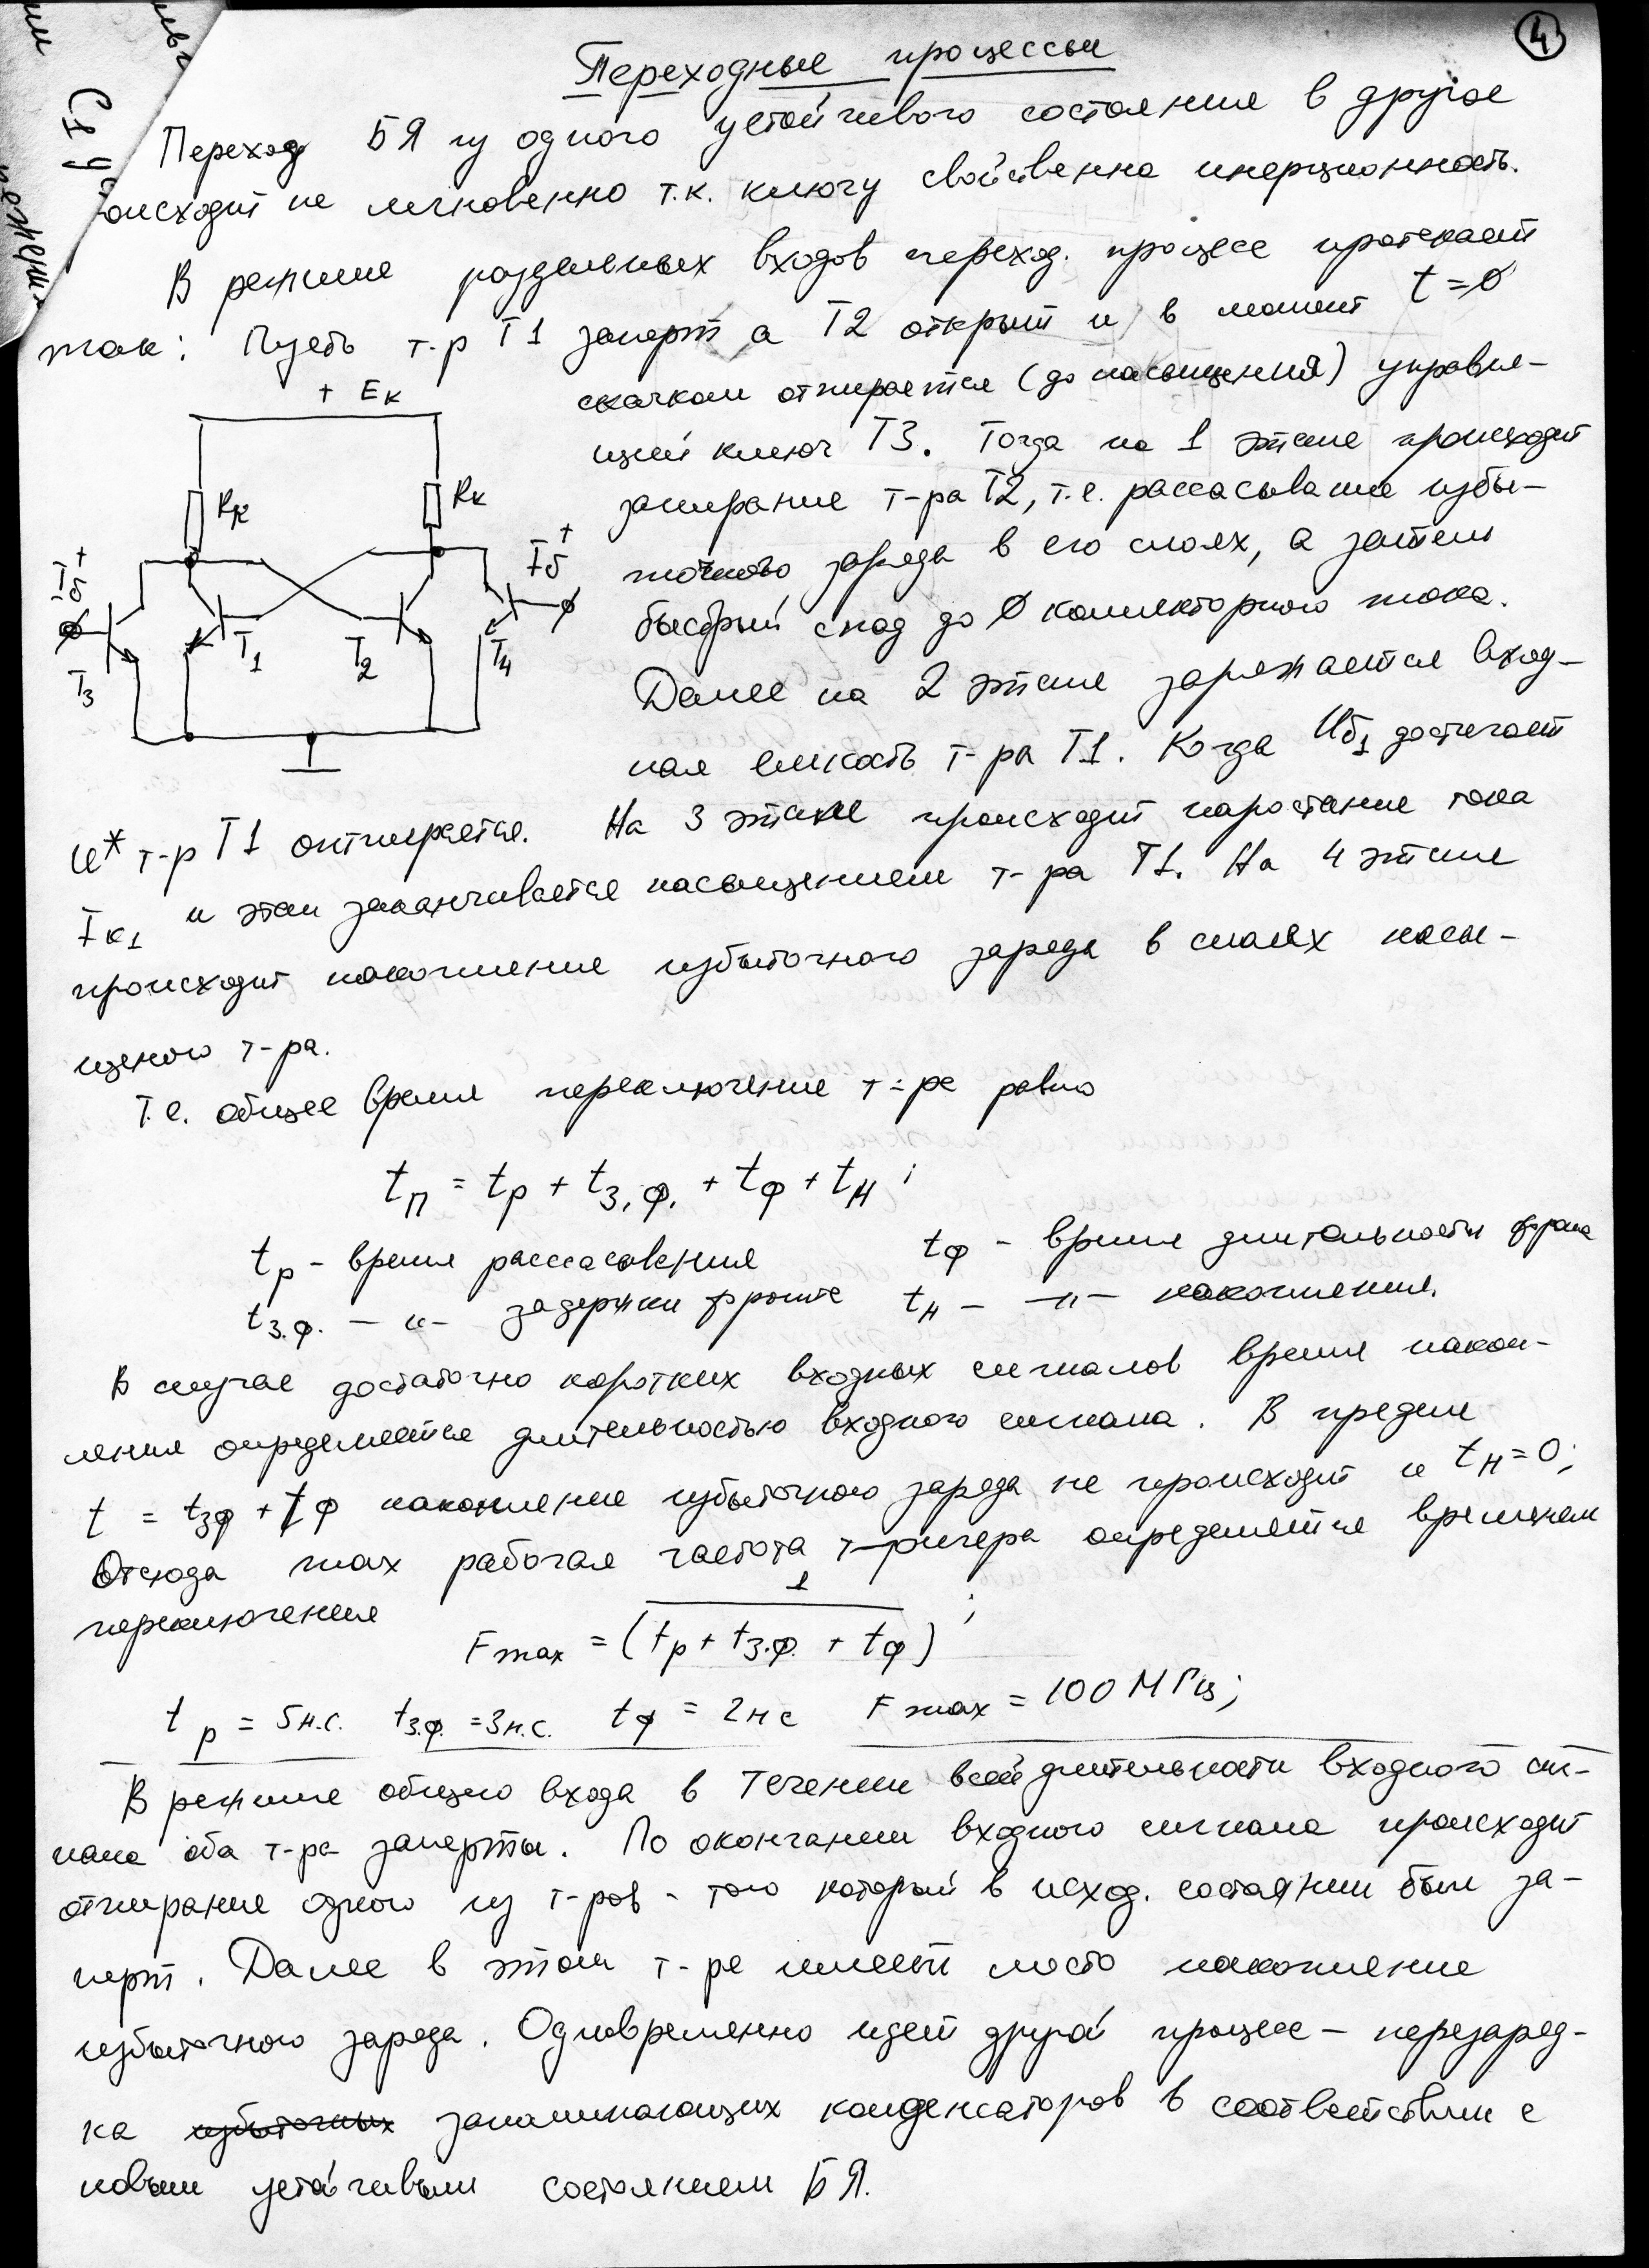 4
Переходные процессы
Переход БЯ из одного устойчивого состояния в другое
оисходит не мгновенно т.к. ключу свойственна инерционность.
В режиме раздельных входов переход. процесс протекает
так: Пусть т-р Т1 заперт а Т2 открыт и в момент t=0
скачком отпирается (до насыщения) управля-
щий ключ Т3. Тогда на 1 этапе происходит
запирание т-ра Т2, т.е. рассасывание избы-
точного заряда в его слоях, а затем
быстрый спад до 0 коллекторного тока.
Далее на 2 этапе заряжается вход-
ная емкость т-ра Т1. Когда Uб1 достигает
U* т-р Т1 отпирается. На 3 этапе происходит нарастание тока
Iк1 и этап заканчивается насыщением т-ра Т1. На 4 этапе
происходит накопление избыточного заряда в слоях насы-
щеного т-ра.
+ Eк
Rк Rк
Iб+ Iб+
T3 T1 T2 T4
Т.е. общее время переключение т-ра равно
tп = tр + tз.ф. + tф + tн ;
tр - время рассасования tф - время длительности фрона
tз.ф. - "- задержки фронта tн - -"- накопления.
В случае достаточно коротких входных сигналов время накоп-
ления определяется длительностью входного сигнала. В пределе
t = tзф + tф накопление избыточного заряда не происходит и tн=0;
Отсюда max рабочая частота т-ригера определяется временем
переключения
Fmax = 1 (tр + tз.ф. + tф) ;
tр = 5н.с. tз.ф. = 3н.с. tф = 2нс Fmax = 100 МГц;
В режиме общего входа в течении всей длительности входного сиг-
нала оба т-ра заперты. По окончании входного сигнала происходит
отпирание одного из т-ров - того который в исход. состоянии был за-
перт. Далее в этом т-ре имеет место накопление
избыточного заряда. Одновременно идет другой процесс - перезаряд-
ка избыточных запоминающих конденсаторов в соответствии с
новым устойчивым состоянием БЯ.